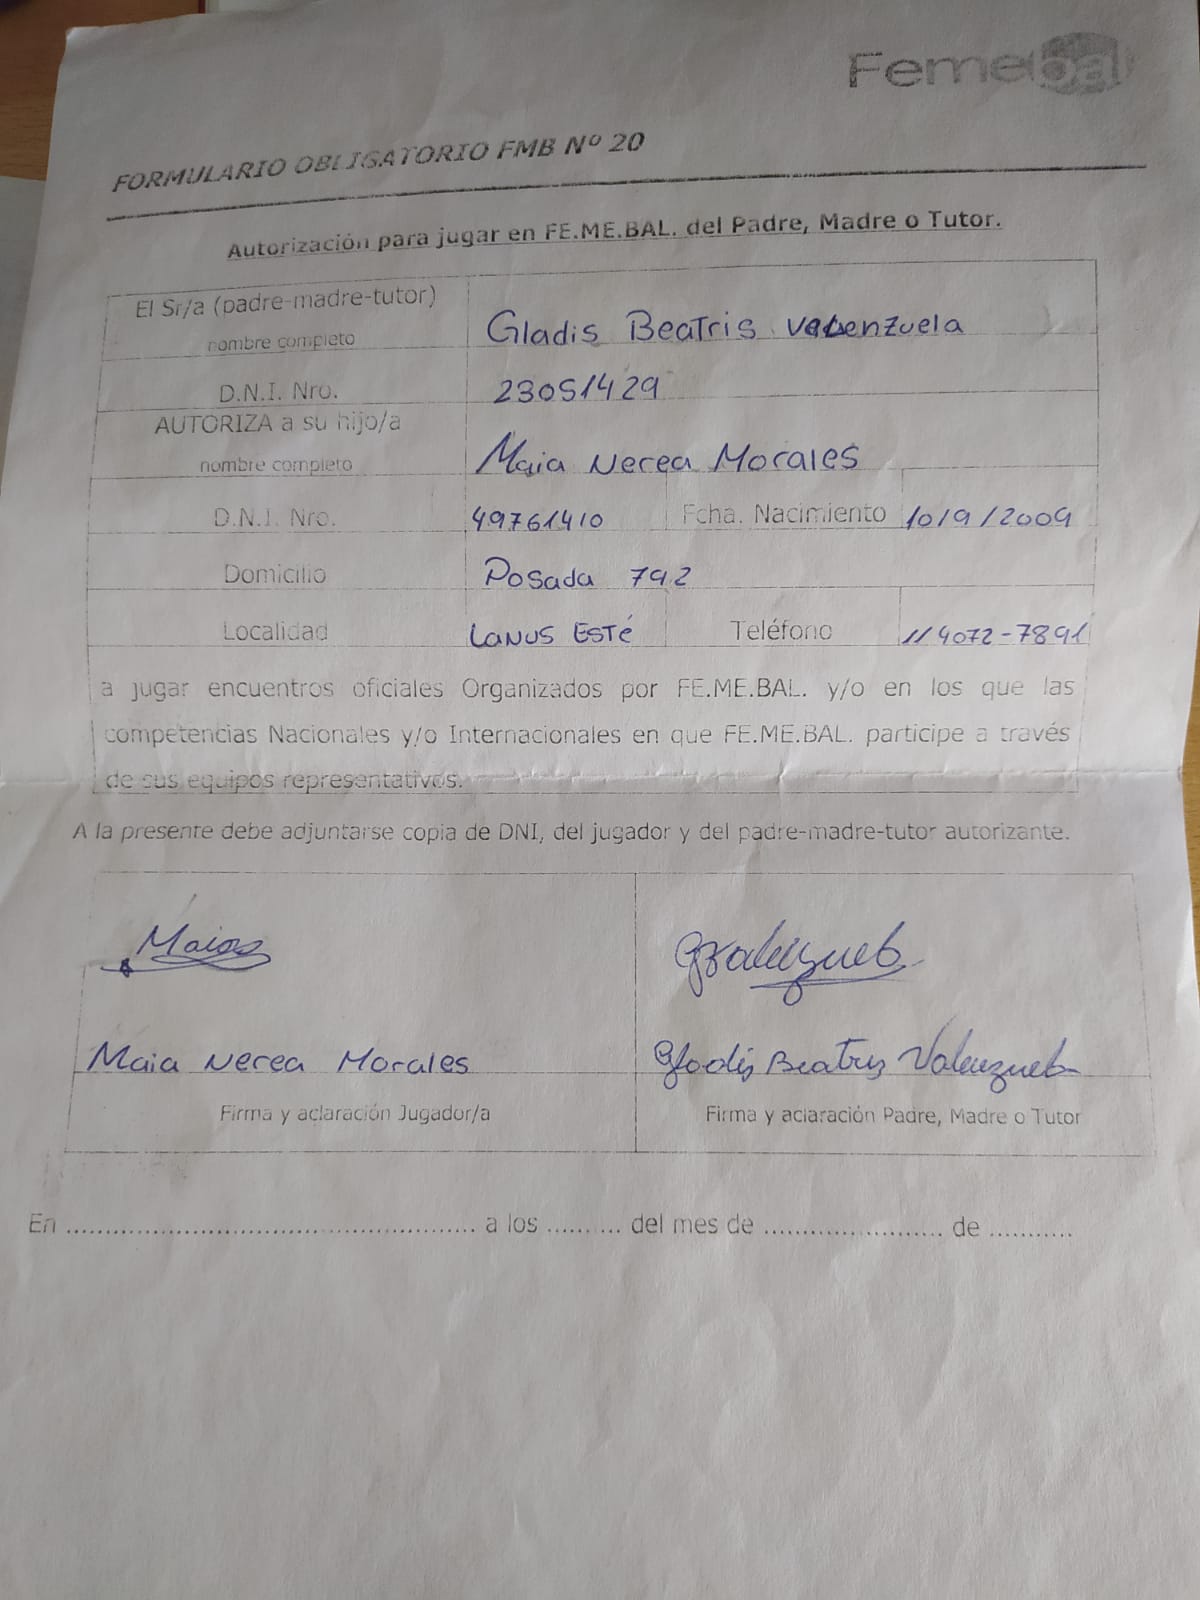 Femebal
FORMULARIO OBLIGATORIO FMB Nº 20
Autorización para jugar en FE.ME.BAL. del Padre, Madre o Tutor.
El Sr/a (padre-madre-tutor)
nombre completo
Gladis Beatris Valenzuela
D.N.I. Nro.
23051429
AUTORIZA a su hijo/a
nombre completo
Maia Nerea Morales
D.N.I. Nro. 49761410 Fcha. Nacimiento 10/9/2009
Domicilio Posada 792
Localidad LANUS ESTÉ Teléfono 11 4072-7891
a jugar encuentros oficiales Organizados por FE.ME.BAL. y/o en los que las
competencias Nacionales y/o Internacionales en que FE.ME.BAL. participe a través
de sus equipos representativos.
A la presente debe adjuntarse copia de DNI, del jugador y del padre-madre-tutor autorizante.
Maia
Maia Nerea Morales
Firma y aclaración Jugador/a
Gladis Beatris Valenzuela
Firma y aclaración Padre, Madre o Tutor
En ........................................................ a los .......... del mes de ........................ de ...........